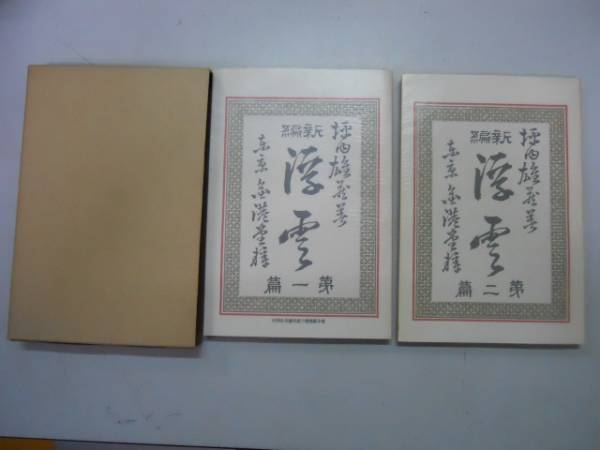 坪内雄蔵著
新編
浮雲
第一篇
東京 金港堂梓
坪内雄蔵著
新編
浮雲
第二篇
東京 金港堂梓